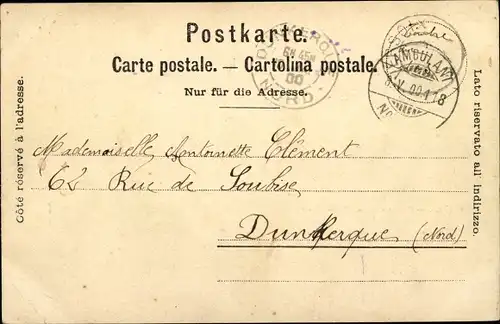 Postkarte.
Carte postale. — Cartolina postale.
Nur für die Adresse.
Côté réservé à l'adresse.
Lato riservato all' indirizzo.
NORD
AMBULANT
Mademoiselle Antoinette Clément
63 Rue de Soubise
Dunkerque (Nord)